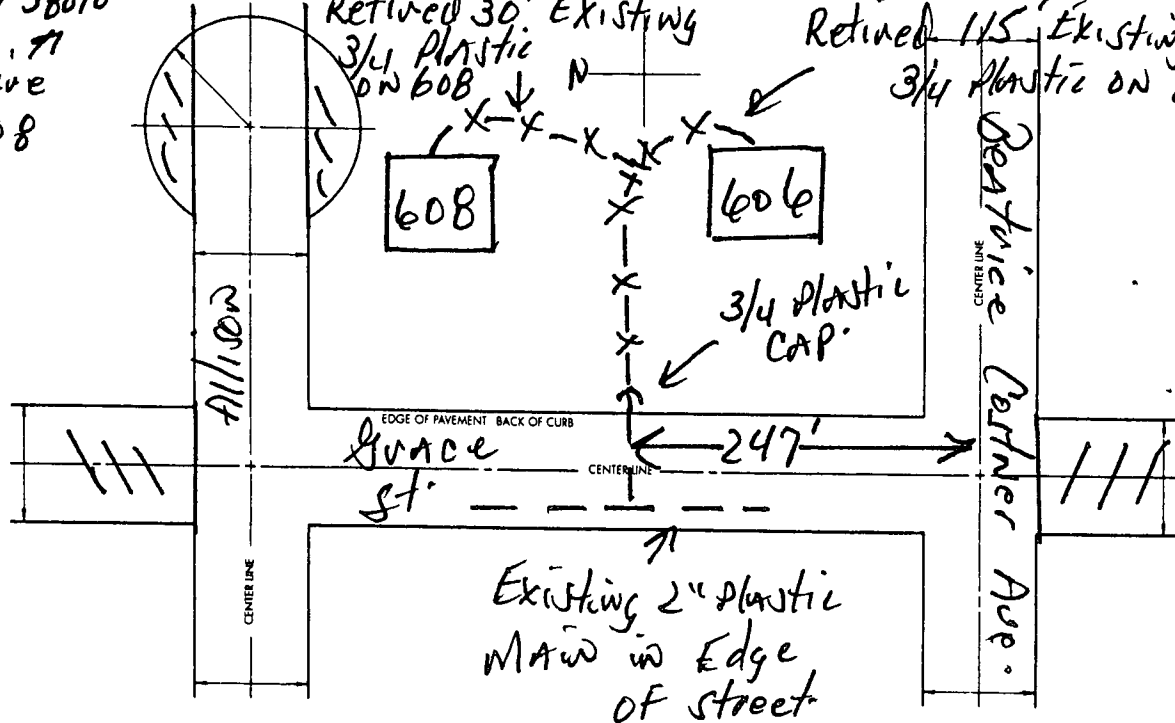 Retired 30' Existing
3/4 Plastic
ON 608
Retired 115' Existing
3/4 Plastic ON
N
608
606
3/4 Plastic
CAP.
Allison
CENTER LINE
Beatrice Costner Ave.
CENTER LINE
EDGE OF PAVEMENT BACK OF CURB
Grace
St.
CENTER LINE
247'
Existing 2" Plastic
MAIN in Edge
OF street.